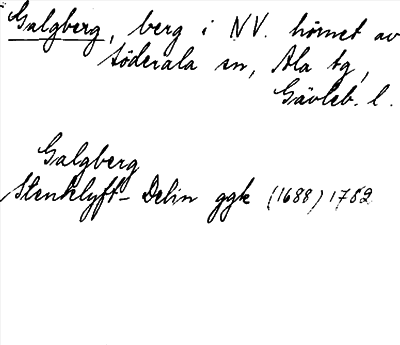 Galgberg, berg i NV. hörnet av
Söderala sn, Ala tg,
Gävleb. l.
Galgberg
Stenklyft- Delin ggk (1688) 1752